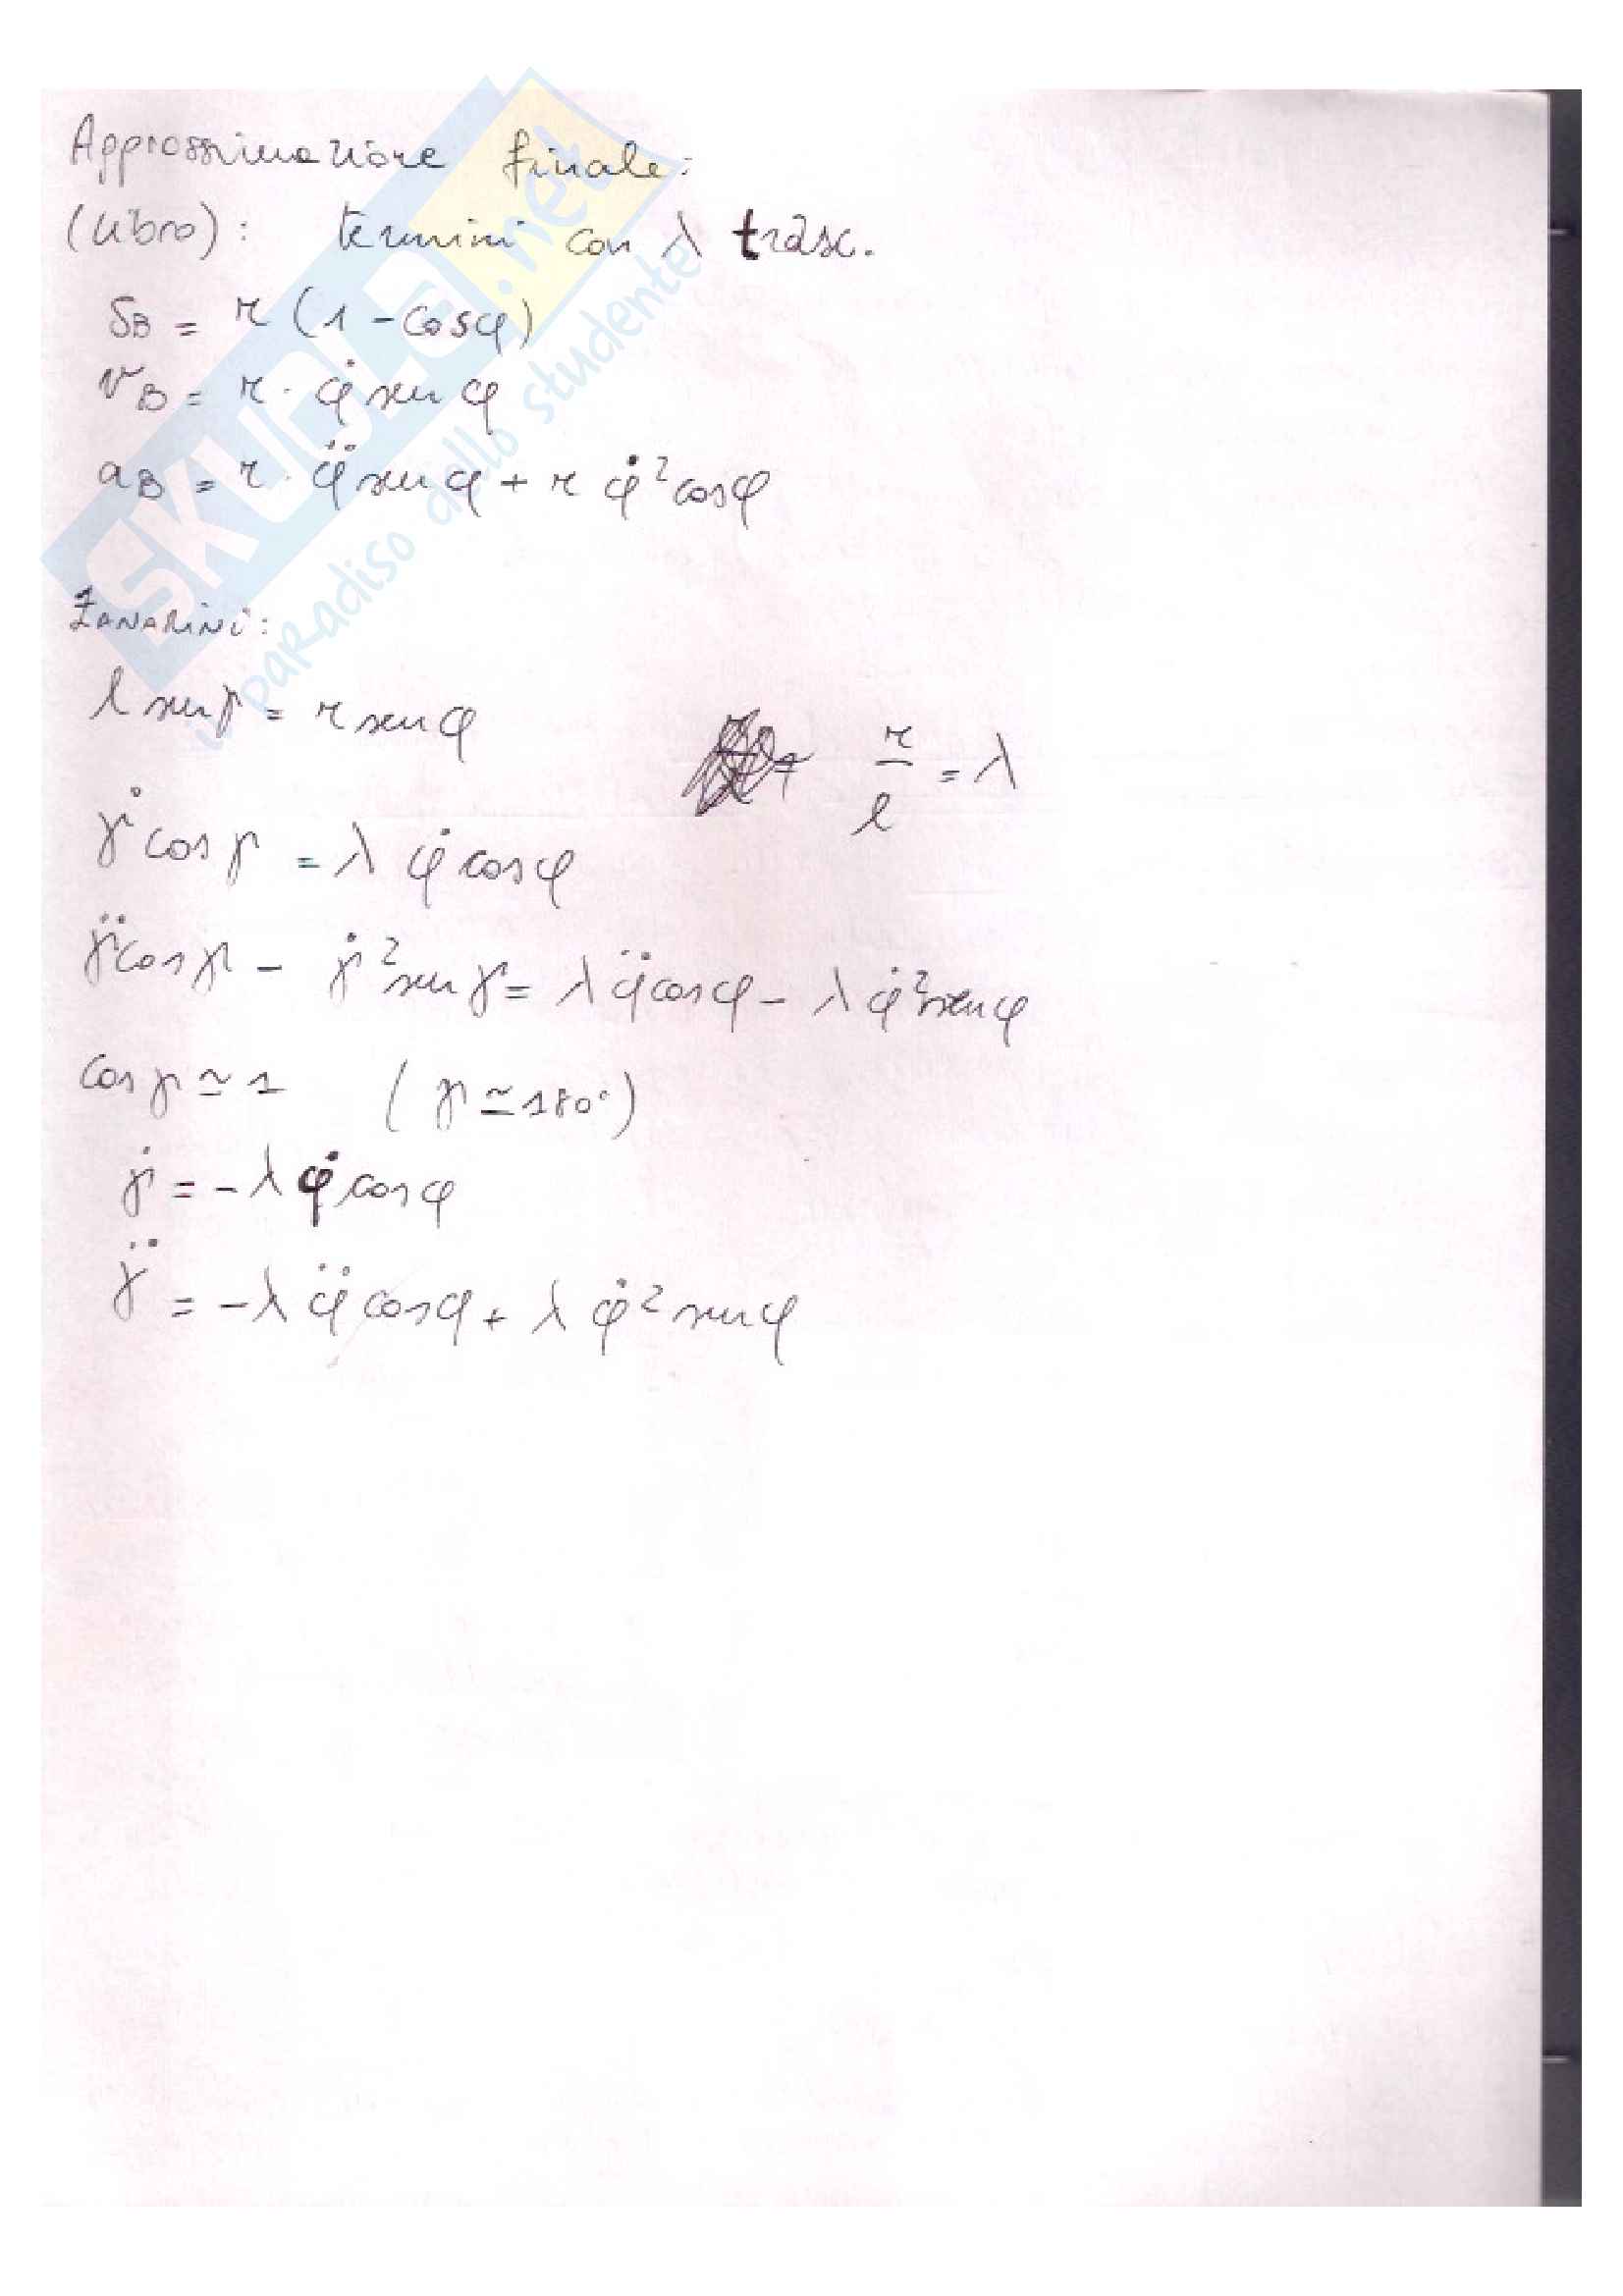 Approssimazione finale:
(libro): termini con λ trasc.
S_B = r (1 - cosφ)
v_B = r · φ̇ sen φ
a_B = r · φ̈ sen φ + r φ̇² cosφ
ZANARINI:
l sen γ = r sen φ
r/l = λ
γ̇ cos γ = λ φ̇ cosφ
γ̈ cos γ - γ̇² sen γ = λ φ̈ cosφ - λ φ̇² sen φ
cos γ ≃ 1 ( γ ≃ 180° )
γ̇ = -λ φ̇ cos φ
γ̈ = -λ φ̈ cosφ + λ φ̇² sen φ
SKUOLA.net
il paradiso dello studente